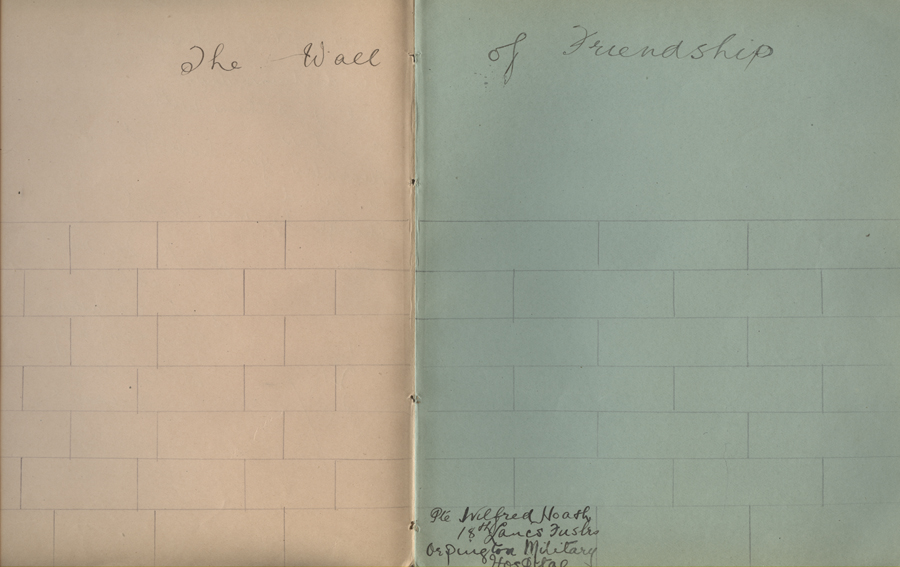 The Wall of Friendship
Pte Wilfred Hoath
18th Lancs Fuslrs
Orpington Military
Hospital